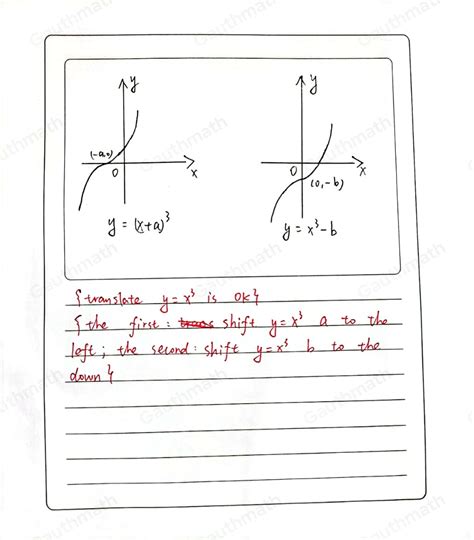 y
y
(-a,0)
O
x
O
x
(0,-b)
y = (x+a)³
y = x³-b
{translate y=x³ is OK}
{the first: shift y=x³ a to the
left; the second: shift y=x³ b to the
down}
Gauthmath